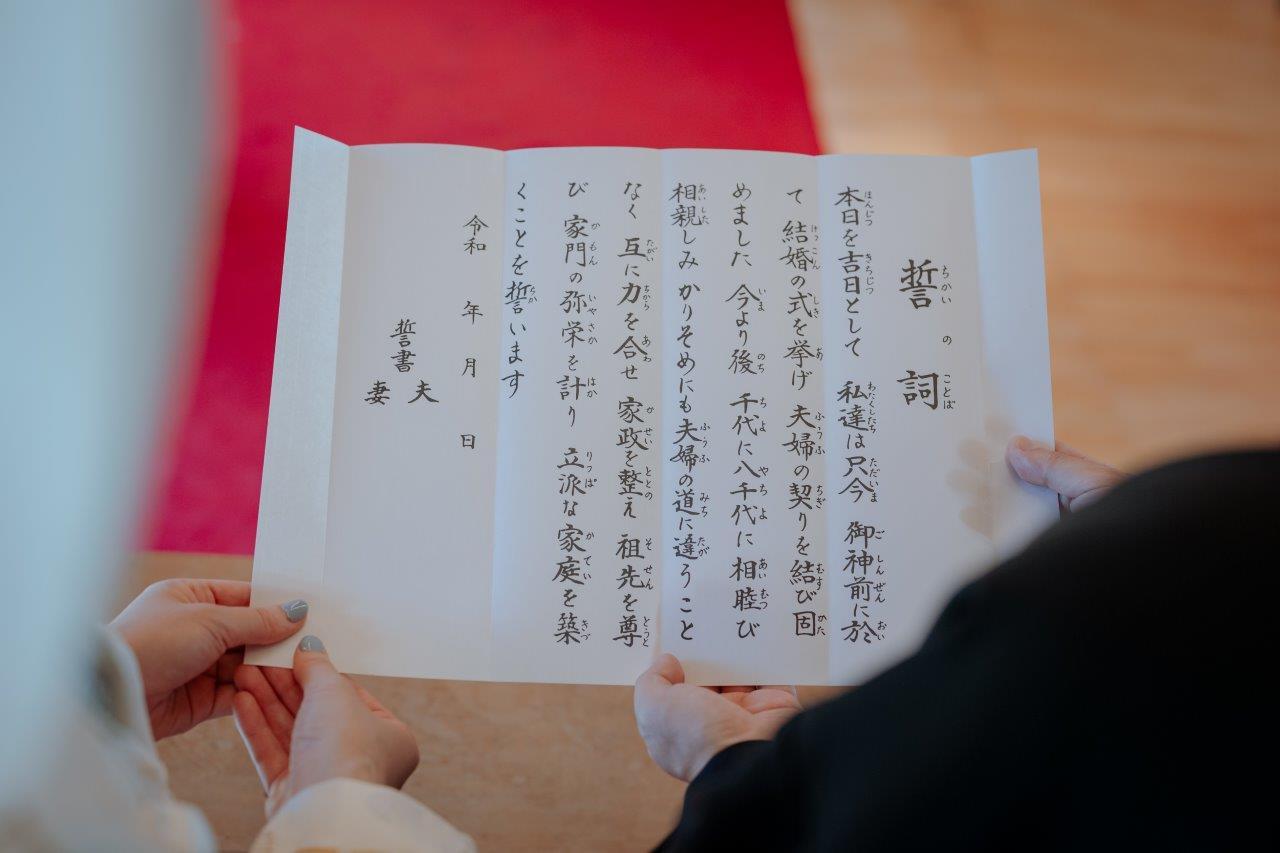 誓の詞
本日を吉日として 私達は只今 御神前に於
て 結婚の式を挙げ 夫婦の契りを結び固
めました 今より後 千代に八千代に 相睦び
相親しみ かりそめにも夫婦の道に違うこと
なく 互に力を合せ 家政を整え 祖先を尊
び 家門の弥栄を計り 立派な家庭を築
くことを誓います
令和 年 月 日
誓書
夫
妻